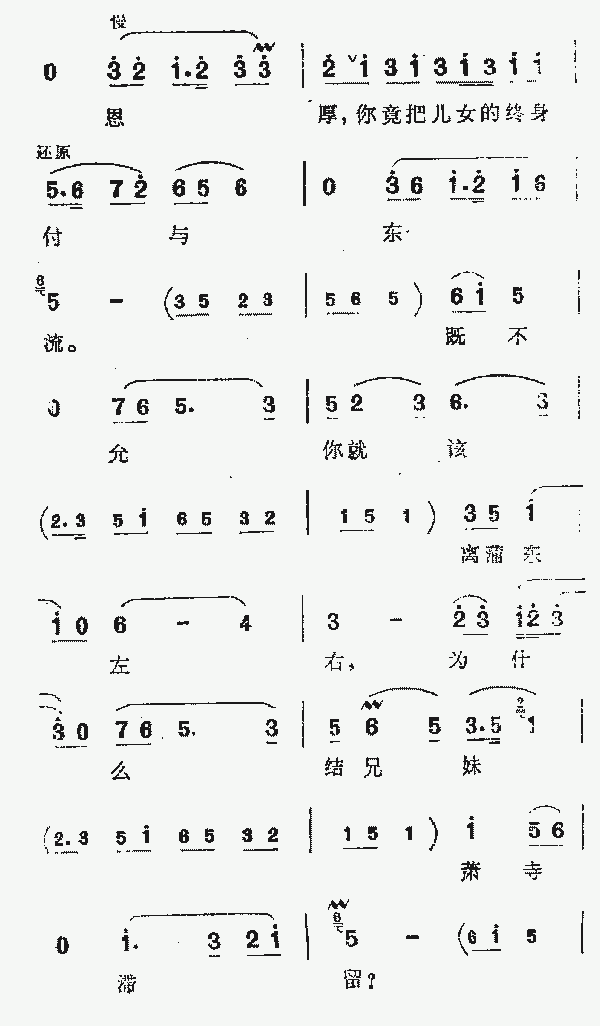 慢
0 3 2 1.2 3 3 | 2 1 3 1 3 1 3 1 1
恩 厚，你竟把儿女的终身
还原
5.6 7 2 6 5 6 | 0 3 6 1.2 1 6
付 与 东
6 5 - (3 5 2 3 | 5 6 5) 6 1 5
流。 既 不
0 7 6 5. 3 | 5 2 3 6. 3
允 你就 该
(2.3 5 1 6 5 3 2 | 1 5 1) 3 5 1
离蒲东
1 0 6 - 4 | 3 - 2 3 1 2 3
左 右， 为 什
3 0 7 6 5. 3 | 5 6 5 3.5 2 1
么 结兄 妹
(2.3 5 1 6 5 3 2 | 1 5 1) 1 5 6
萧 寺
0 1. 3 2 1 | 6 5 - (6 1 5
滞 留？